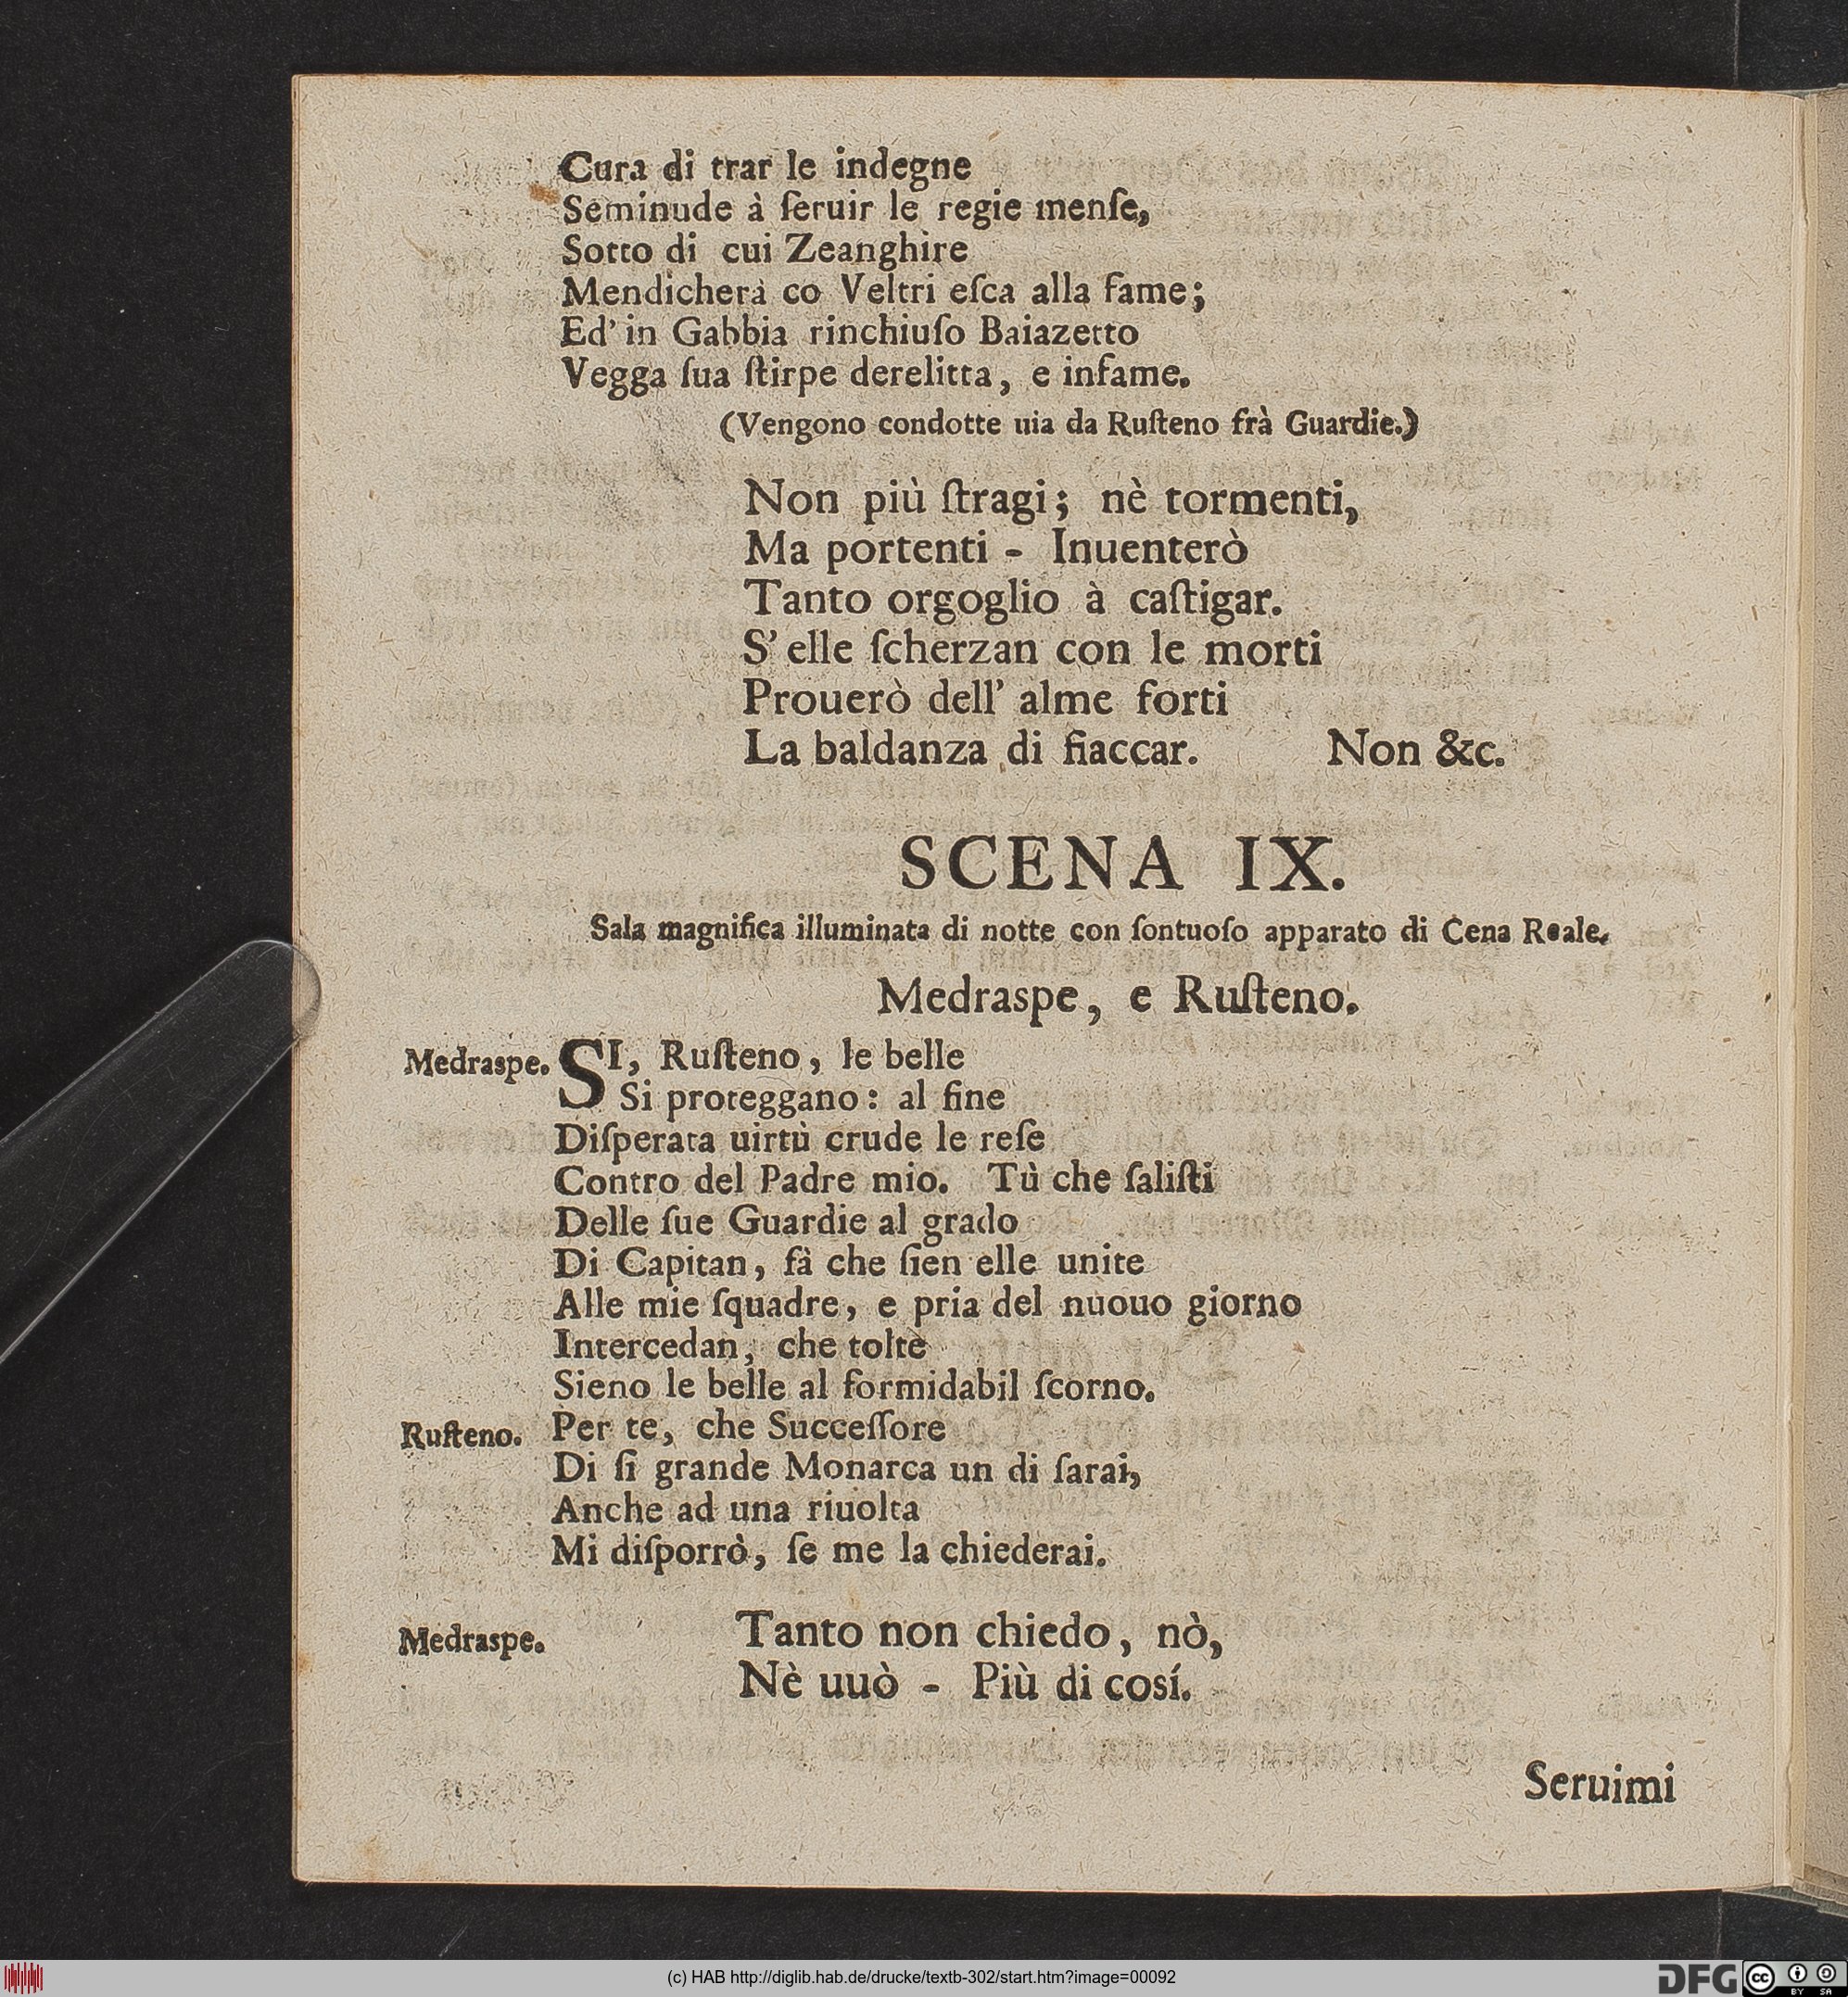 Cura di trar le indegne
Seminude à ſeruir le regie menſe,
Sotto di cui Zeanghire
Mendicherà co Veltri eſca alla fame;
Ed' in Gabbia rinchiuſo Baiazetto
Vegga ſua ſtirpe derelitta, e infame.
(Vengono condotte uia da Ruſteno frà Guardie.)
Non più ſtragi; nè tormenti,
Ma portenti - Inuenterò
Tanto orgoglio à caſtigar.
S' elle ſcherzan con le morti
Prouerò dell' alme forti
La baldanza di fiaccar. Non &c.
SCENA IX.
Sala magnifica illuminata di notte con ſontuoſo apparato di Cena Reale.
Medraspe, e Ruſteno.
Medraspe. SI, Ruſteno, le belle
Si proteggano: al fine
Diſperata uirtù crude le reſe
Contro del Padre mio. Tù che ſaliſti
Delle ſue Guardie al grado
Di Capitan, fà che ſien elle unite
Alle mie ſquadre, e pria del nuouo giorno
Intercedan, che tolte
Sieno le belle al formidabil ſcorno.
Ruſteno. Per te, che Succeſſore
Di ſi grande Monarca un di ſarai,
Anche ad una riuolta
Mi diſporrò, ſe me la chiederai.
Medraspe. Tanto non chiedo, nò,
Nè uuò - Più di cosí.
Seruimi
(c) HAB http://diglib.hab.de/drucke/textb-302/start.htm?image=00092
DFG cc BY SA